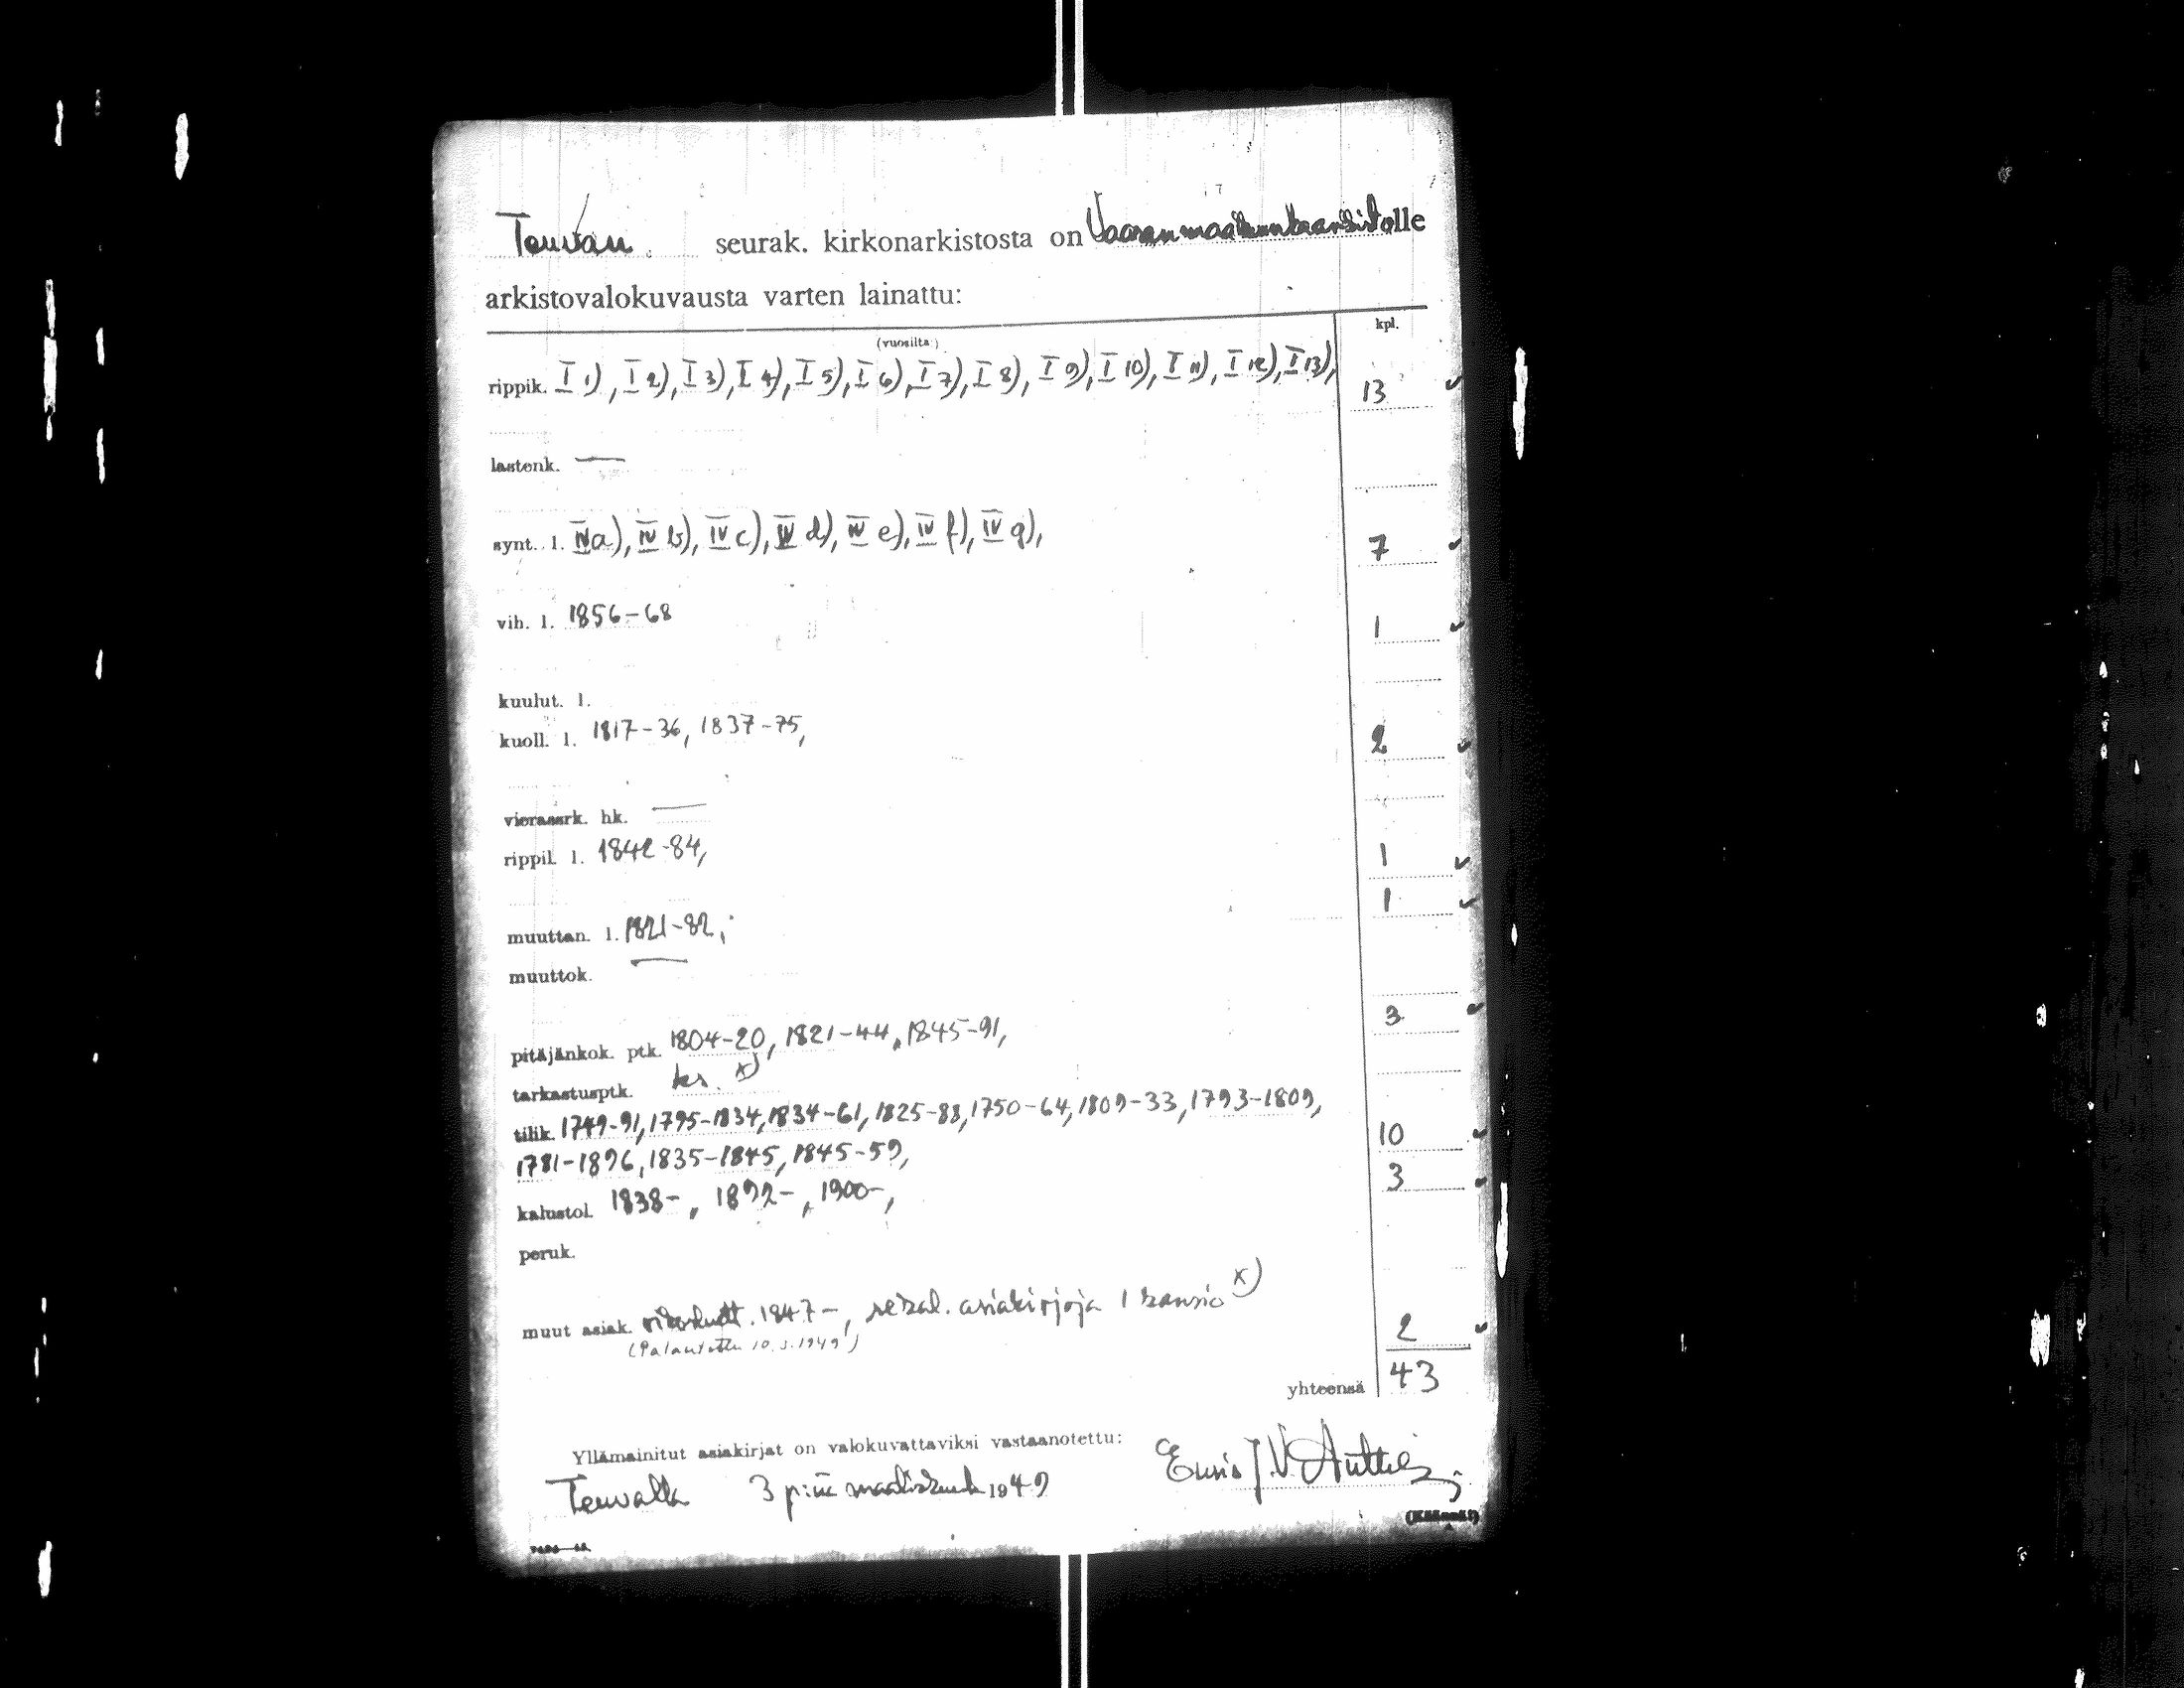 Teuvan seurak. kirkonarkistosta on Vaasan maakunta-arkistolle
arkistovalokuvausta varten lainattu:
(vuosilta) kpl.
rippik. I 1), I 2), I 3), I 4), I 5), I 6), I 7), I 8), I 9), I 10), I 11), I 12), I 13), 13
lastenk. —
synt. l. IV a), IV b), IV c), IV d), IV e), IV f), IV g), 7
vih. l. 1856-68 1
kuulut. l.
kuoll. l. 1817-36, 1837-75, 2
vierassrk. hk. —
rippil. l. 1842-84, 1
muuttan. l. 1821-82, 1
muuttok. —
pitäjänkok. ptk. 1804-20, 1821-44, 1845-91, 3
tarkastusptk. ks. x)
tilik. 1749-91, 1795-1834, 1834-61, 1825-88, 1750-64, 1809-33, 1793-1809,
1781-1896, 1835-1845, 1845-59, 10
kalustol. 1838-, 1892-, 1900-, 3
peruk.
muut asiak. 1847-, sekal. asiakirjoja 1 kansio x) 2
(Palautettu 10.3.1949)
yhteensä 43
Yllämainitut asiakirjat on valokuvattaviksi vastaanotettu:
Teuvalla 3 p:nä maaliskuuta 1949
(Käännä!)